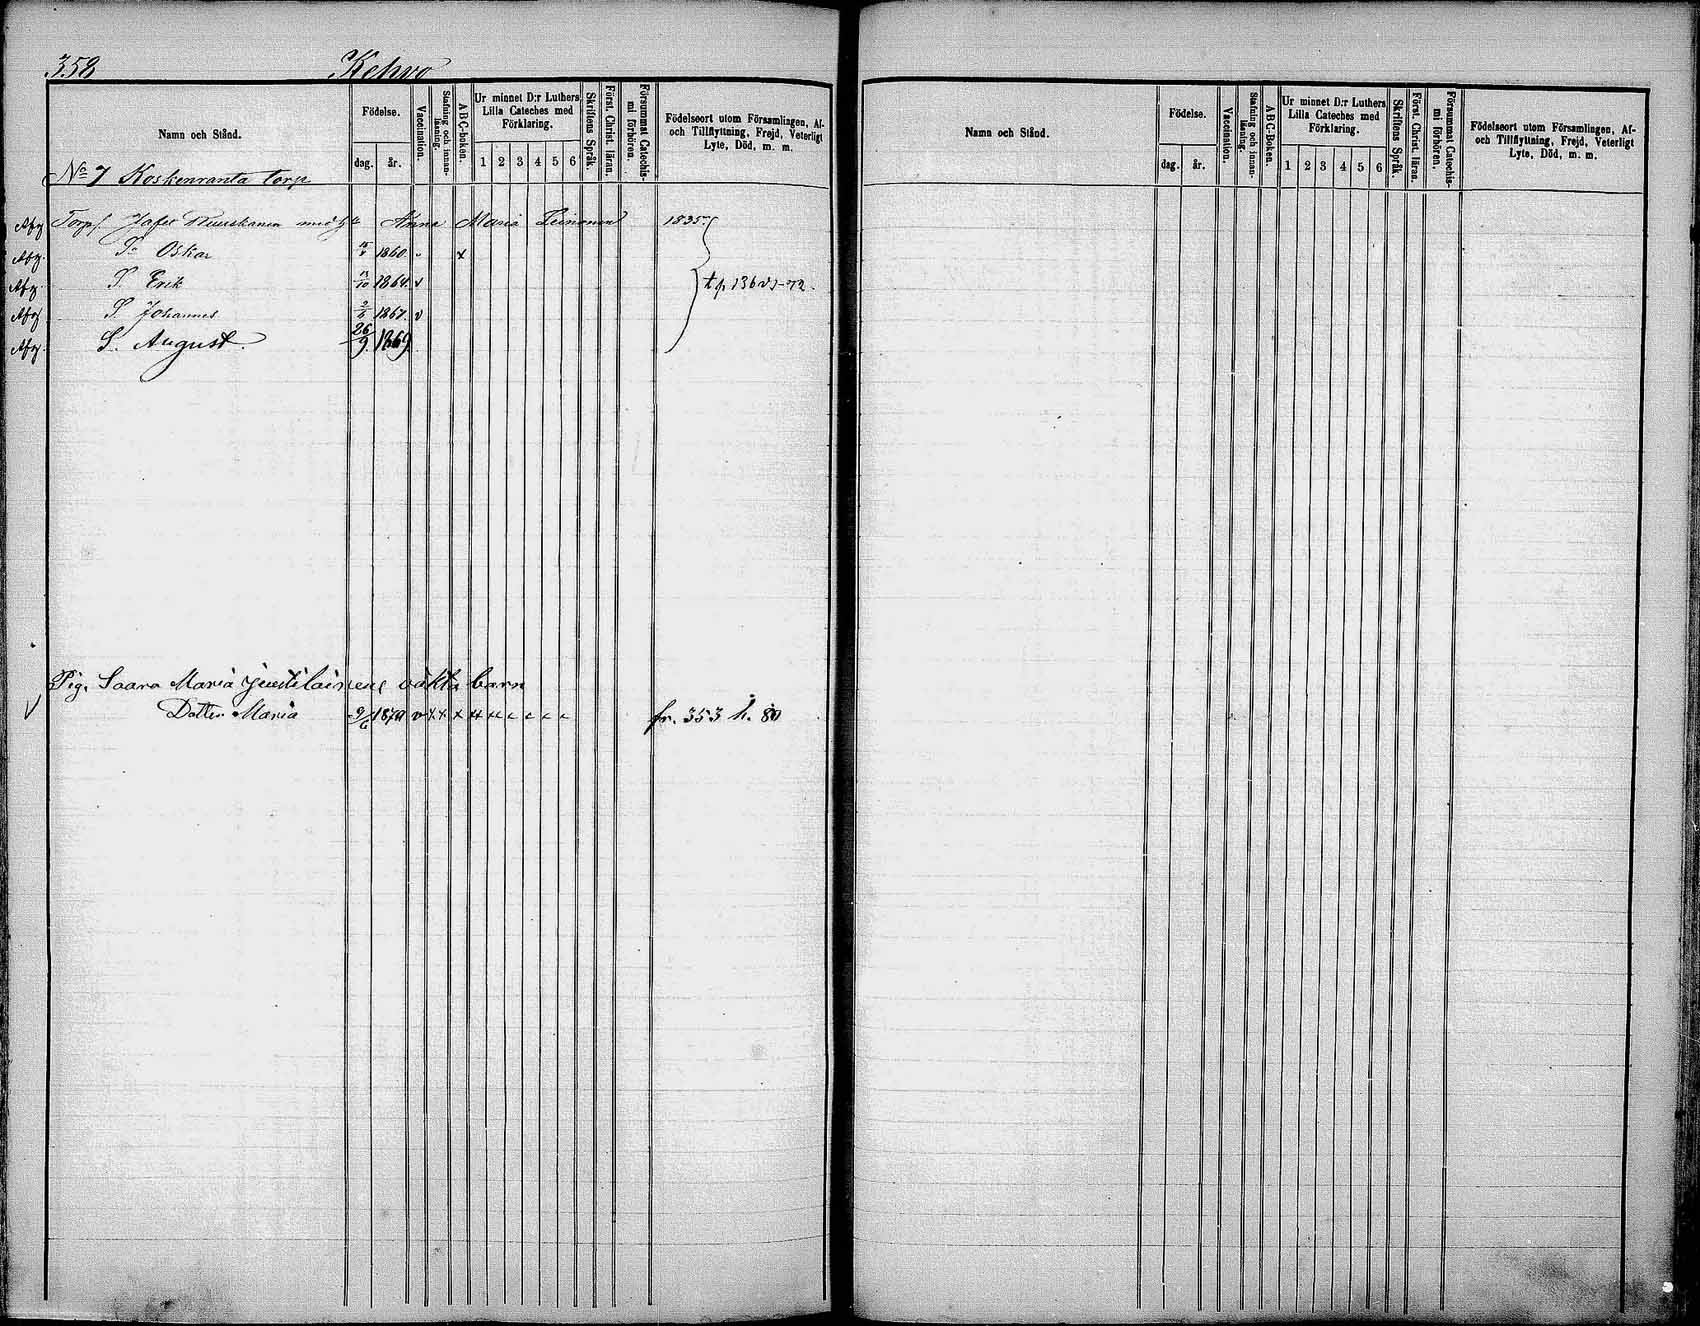 358 Kehvo
Namn och Stånd.
Födelse.
dag. år.
Vaccination.
Stafning och innan-läsning.
ABC-boken.
Ur minnet D:r Luthers
Lilla Cateches med
Förklaring.
1 2 3 4 5 6
Skriftens Språk.
Först. Christ. läran.
Försummat Catechis-mi förhören.
Födelseort utom Församlingen, Af-
och Tillflyttning, Frejd, Veterligt
Lyte, Död, m. m.
No 7 Koskenranta torp
Afg Torp. Jafet med h Anna Maria Leinonen 1835
Afg. Oskar 1860. x
Afg. S. Erik 1864 v
Afg. S. Johannes 1867. v
Afg. S. August. 26/9 1869
Pig. Saara Maria Juutilainens oäkta barn
v Dotter Maria 9/6 1870 v x x x
fr. 353 h. 80
Namn och Stånd.
Födelse.
dag. år.
Vaccination.
Stafning och innan-läsning.
ABC-Boken.
Ur minnet D:r Luthers
Lilla Cateches med
Förklaring.
1 2 3 4 5 6
Skriftens Språk.
Först. Christ. läran.
Försummat Catechis-mi förhören.
Födelseort utom Församlingen, Af-
och Tillflyttning, Frejd, Veterligt
Lyte, Död, m. m.